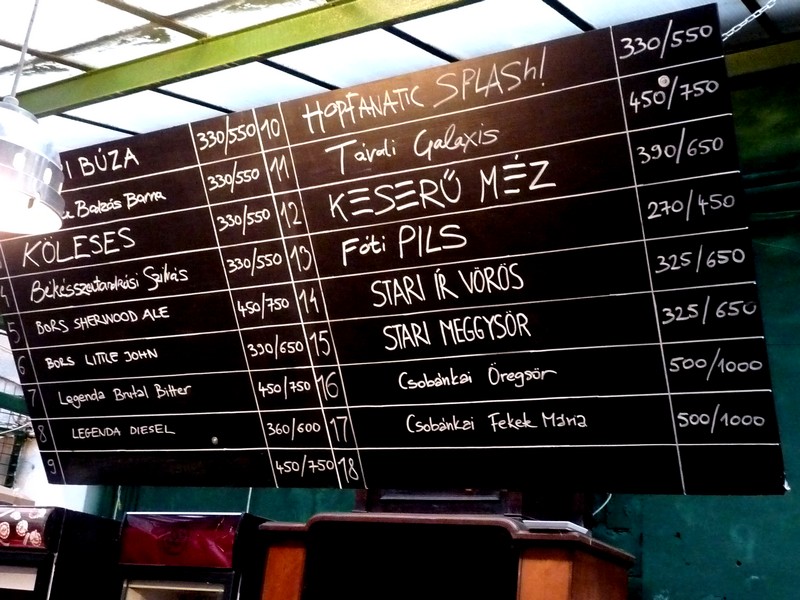 I BÚZA 330/550
Barna 330/550
KÖLESES 330/550
4 Békésszentandrási Szikás 330/550
5 BORS SHERWOOD ALE 450/750
6 BORS LITTLE JOHN 390/650
7 Legenda Brutal Bitter 450/750
8 LEGENDA DIESEL 360/600
9 450/750
10 HOPFANATIC SPLASH! 330/550
11 Távoli Galaxis 450/750
12 KESERŰ MÉZ 390/650
13 Fóti PILS 270/450
14 STARI ÍR VÖRÖS 325/650
15 STARI MEGGYSÖR 325/650
16 Csobánkai Öregsör 500/1000
17 Csobánkai Fekek Mária 500/1000
18